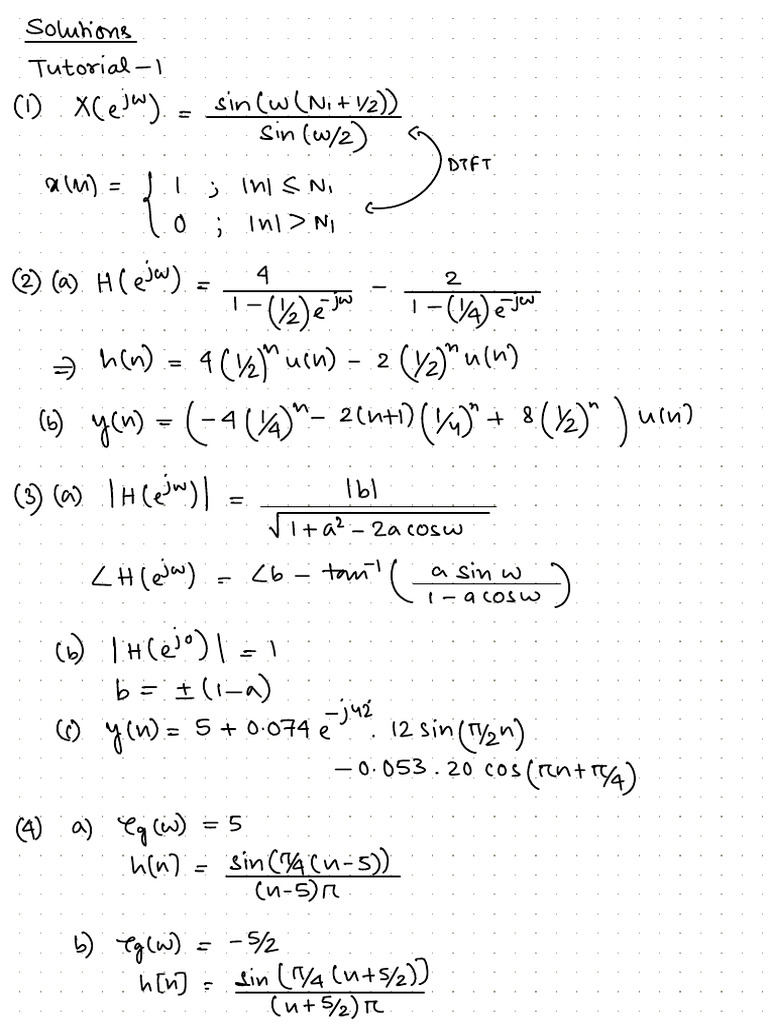 Solutions
Tutorial-1
(1) X(e^{jω}) = sin(ω(N₁+1/2)) / sin(ω/2)
DTFT
x(n) = { 1 ; |n| ≤ N₁
0 ; |n| > N₁
(2) (a) H(e^{jω}) = 4 / (1-(1/2)e^{-jω}) - 2 / (1-(1/4)e^{-jω})
⇒ h(n) = 4(1/2)^n u(n) - 2(1/2)^n u(n)
(b) y(n) = (-4(1/4)^n - 2(n+1)(1/4)^n + 8(1/2)^n) u(n)
(3) (a) |H(e^{jω})| = |b| / √(1+a²-2a cosω)
∠H(e^{jω}) = ∠b - tan⁻¹(a sin ω / (1-a cosω))
(b) |H(e^{j0})| = 1
b = ±(1-a)
(c) y(n) = 5 + 0.074 e^{-j42°} . 12 sin(π/2 n)
-0.053 . 20 cos(πn+π/4)
(4) a) τg(ω) = 5
h[n] = sin(π/4(n-5)) / (n-5)π
b) τg(ω) = -5/2
h[n] = sin(π/4(n+5/2)) / (n+5/2)π